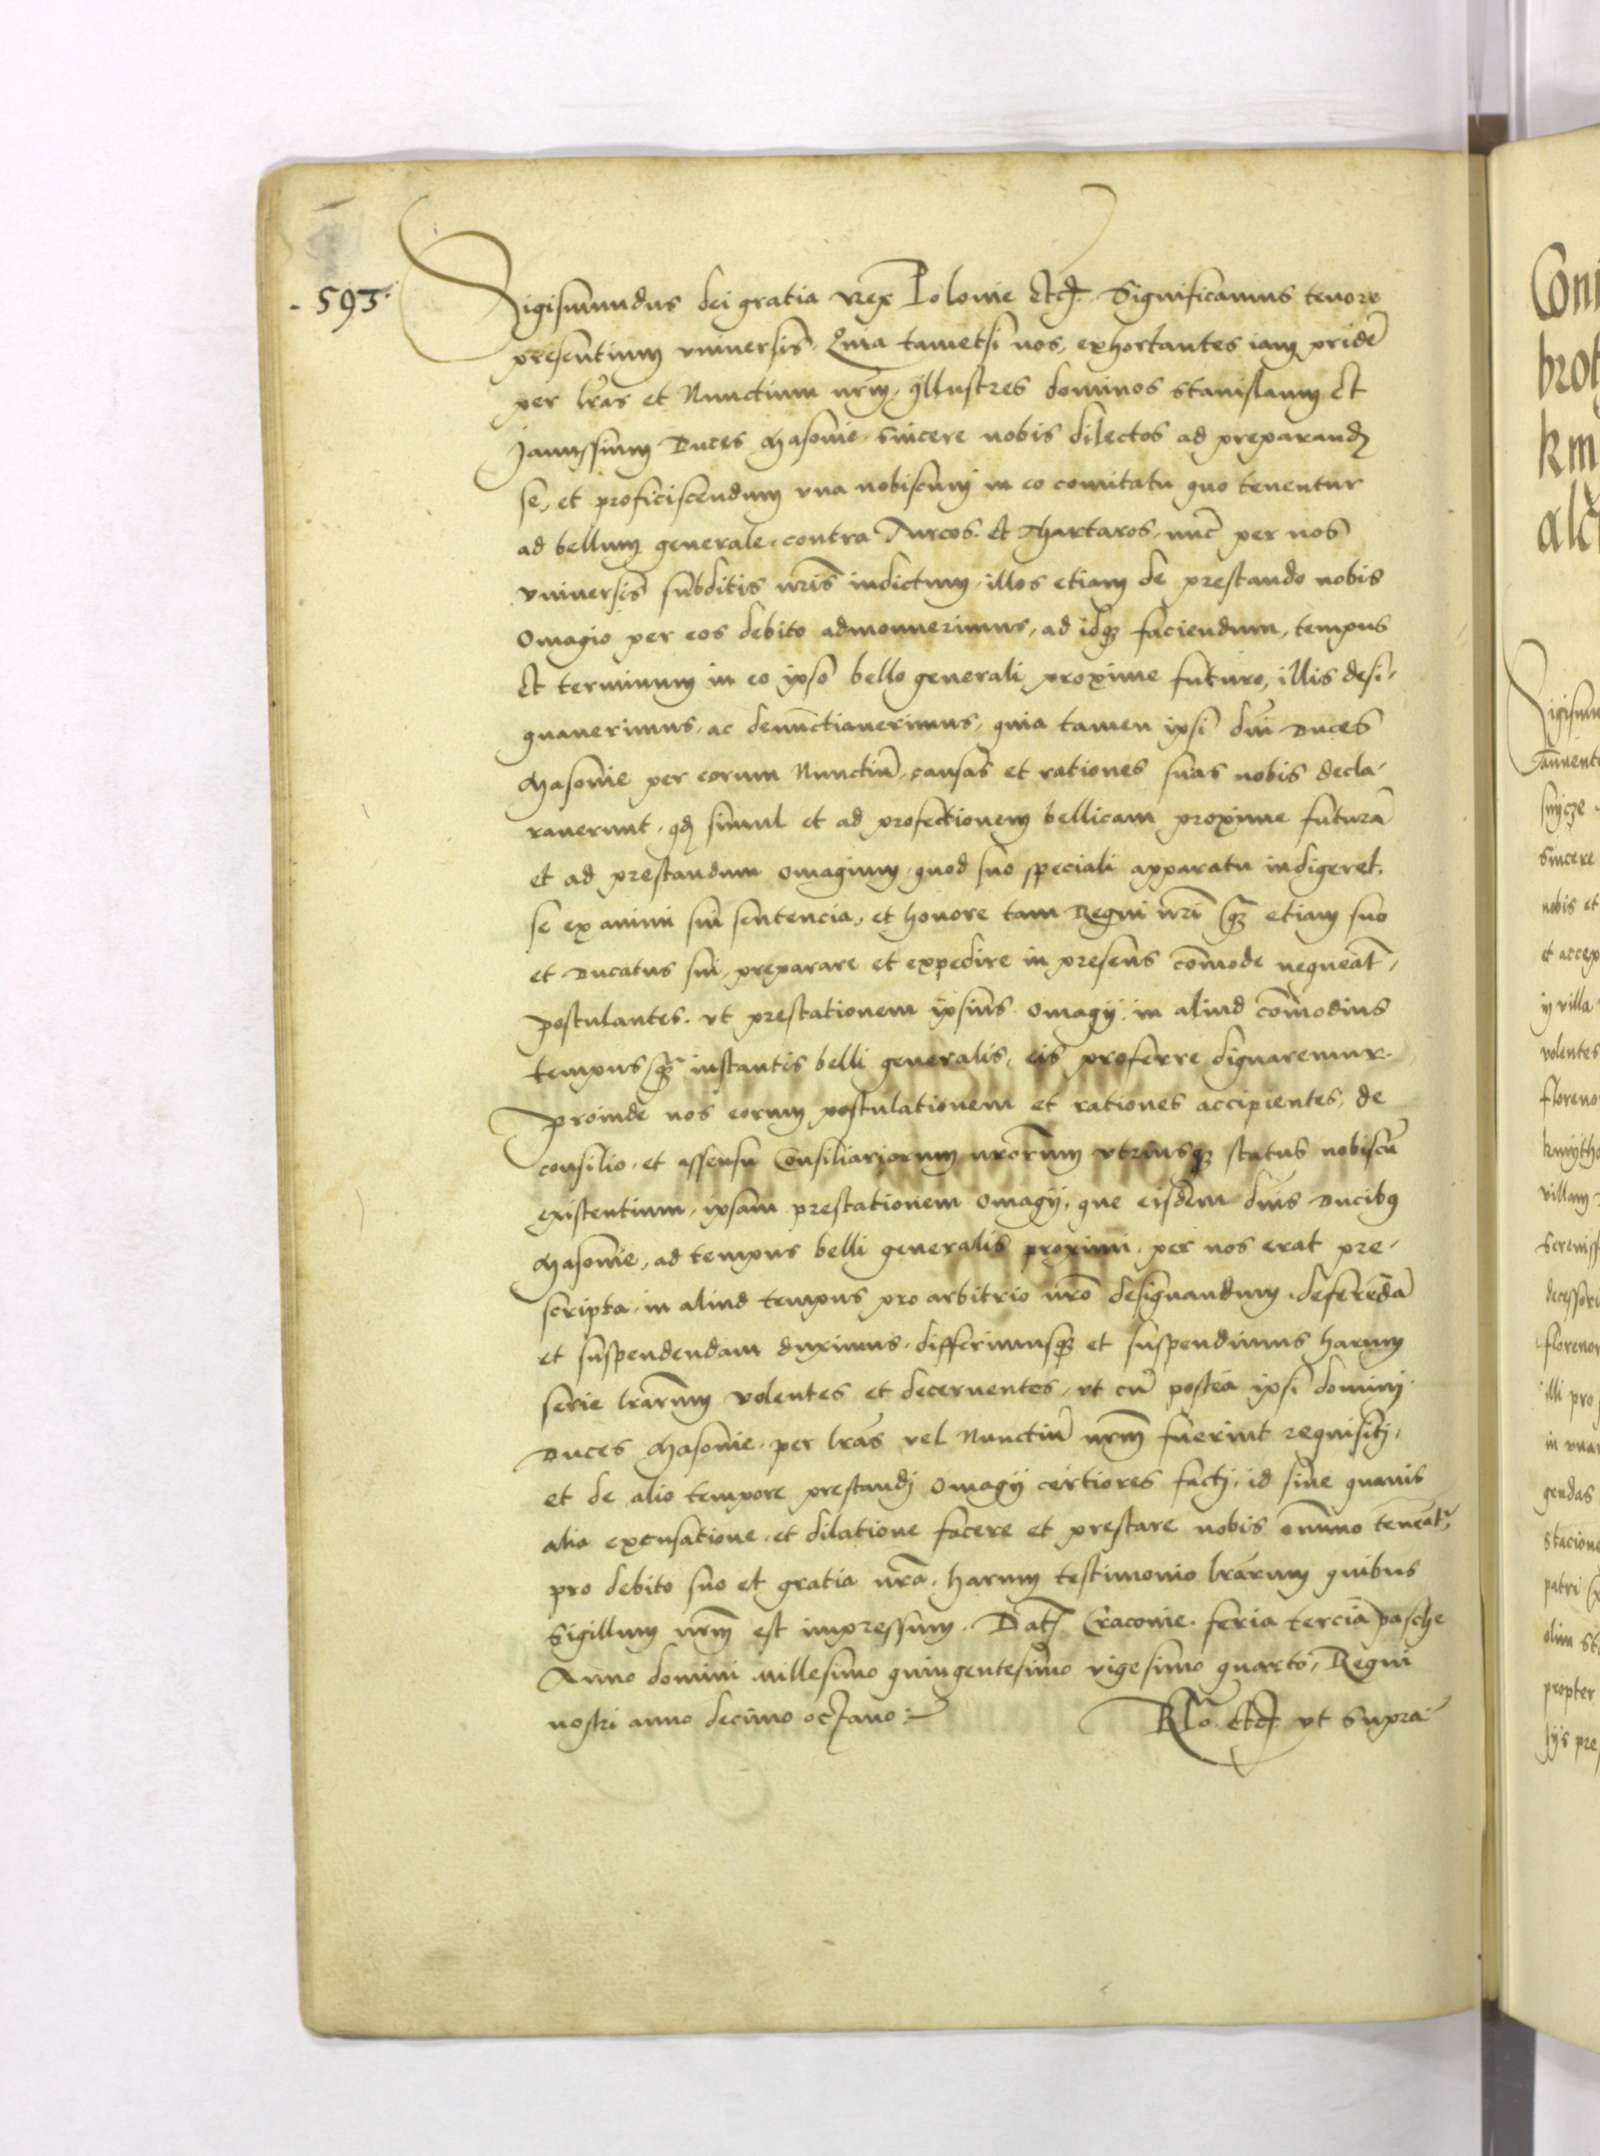 593
Sigismundus dei gratia Rex Polonie etc. Significamus tenore
presentium vniuersis. Quia tametsi nos, exhortantes iam pridẽ
per lr̃as et Nunctium nr̃m, Illustres dominos Stanislaum Et
Janussium Duces Masouie sincere nobis dilectos ad preparandũ
se, et proficiscendum vna nobiscum in eo comitatu quo tenentur
ad bellum generale contra Turcos Et Thartaros, nũc per nos
vniuersis subditis nr̃is indictum, illos etiam de prestando nobis
Omagio per eos debito admonuerimus, ad idq3 faciendum, tempus
Et terminum in eo ipso bello generali proxime futuro, illis desi-
gnauerimus, ac denũctiauerimus, quia tamen ipsi dñi Duces
Masouie per eorum Nunctiũ, causas et rationes suas nobis decla-
rauerunt, qd simul et ad profectionem bellicam proxime futurã
et ad prestandum omagium, quod suo speciali apparatu indigeret,
se ex animi sui sentencia, et honore tam Regni nr̃i q3 etiam suo
et Ducatus sui, preparare et expedire in presens cõmode nequeãt,
postulantes, vt prestationem ipsius Omagij in aliud cõmodius
tempus q̃3 instantis belli generalis, eis proferre dignaremur.
Proinde nos eorum postulationem et rationes accipientes, de
consilio, et assensu Consiliariorum nr̃orum vtriusq3 status nobiscũ
existentium, ipsam prestationem Omagij, que eisdem dñis Ducib9
Masouie, ad tempus belli generalis proximi, per nos erat pre-
scripta, in aliud tempus pro arbitrio nr̃o designandum, deferẽdã
et suspendendam duximus, differimusq3 et suspendimus harum
serie lr̃arum volentes et decernentes, vt cũ postea ipsi domini
Duces Masouie, per lr̃as vel Nunctiũ nr̃m fuerint requisiti,
et de alio tempore prestandi Omagij certiores facti, id sine quauis
alia excusatione, et dilatione facere et prestare nobis omnino teneãt,
pro debito suo et gratia nr̃a, harum testimonio lr̃arum quibus
Sigillum nr̃m est impressum. Dat Cracouie feria tercia pasche
Anno domini millesimo quingentesimo vigesimo quarto, Regni
nostri anno decimo octauo
Rlo. etc vt supra